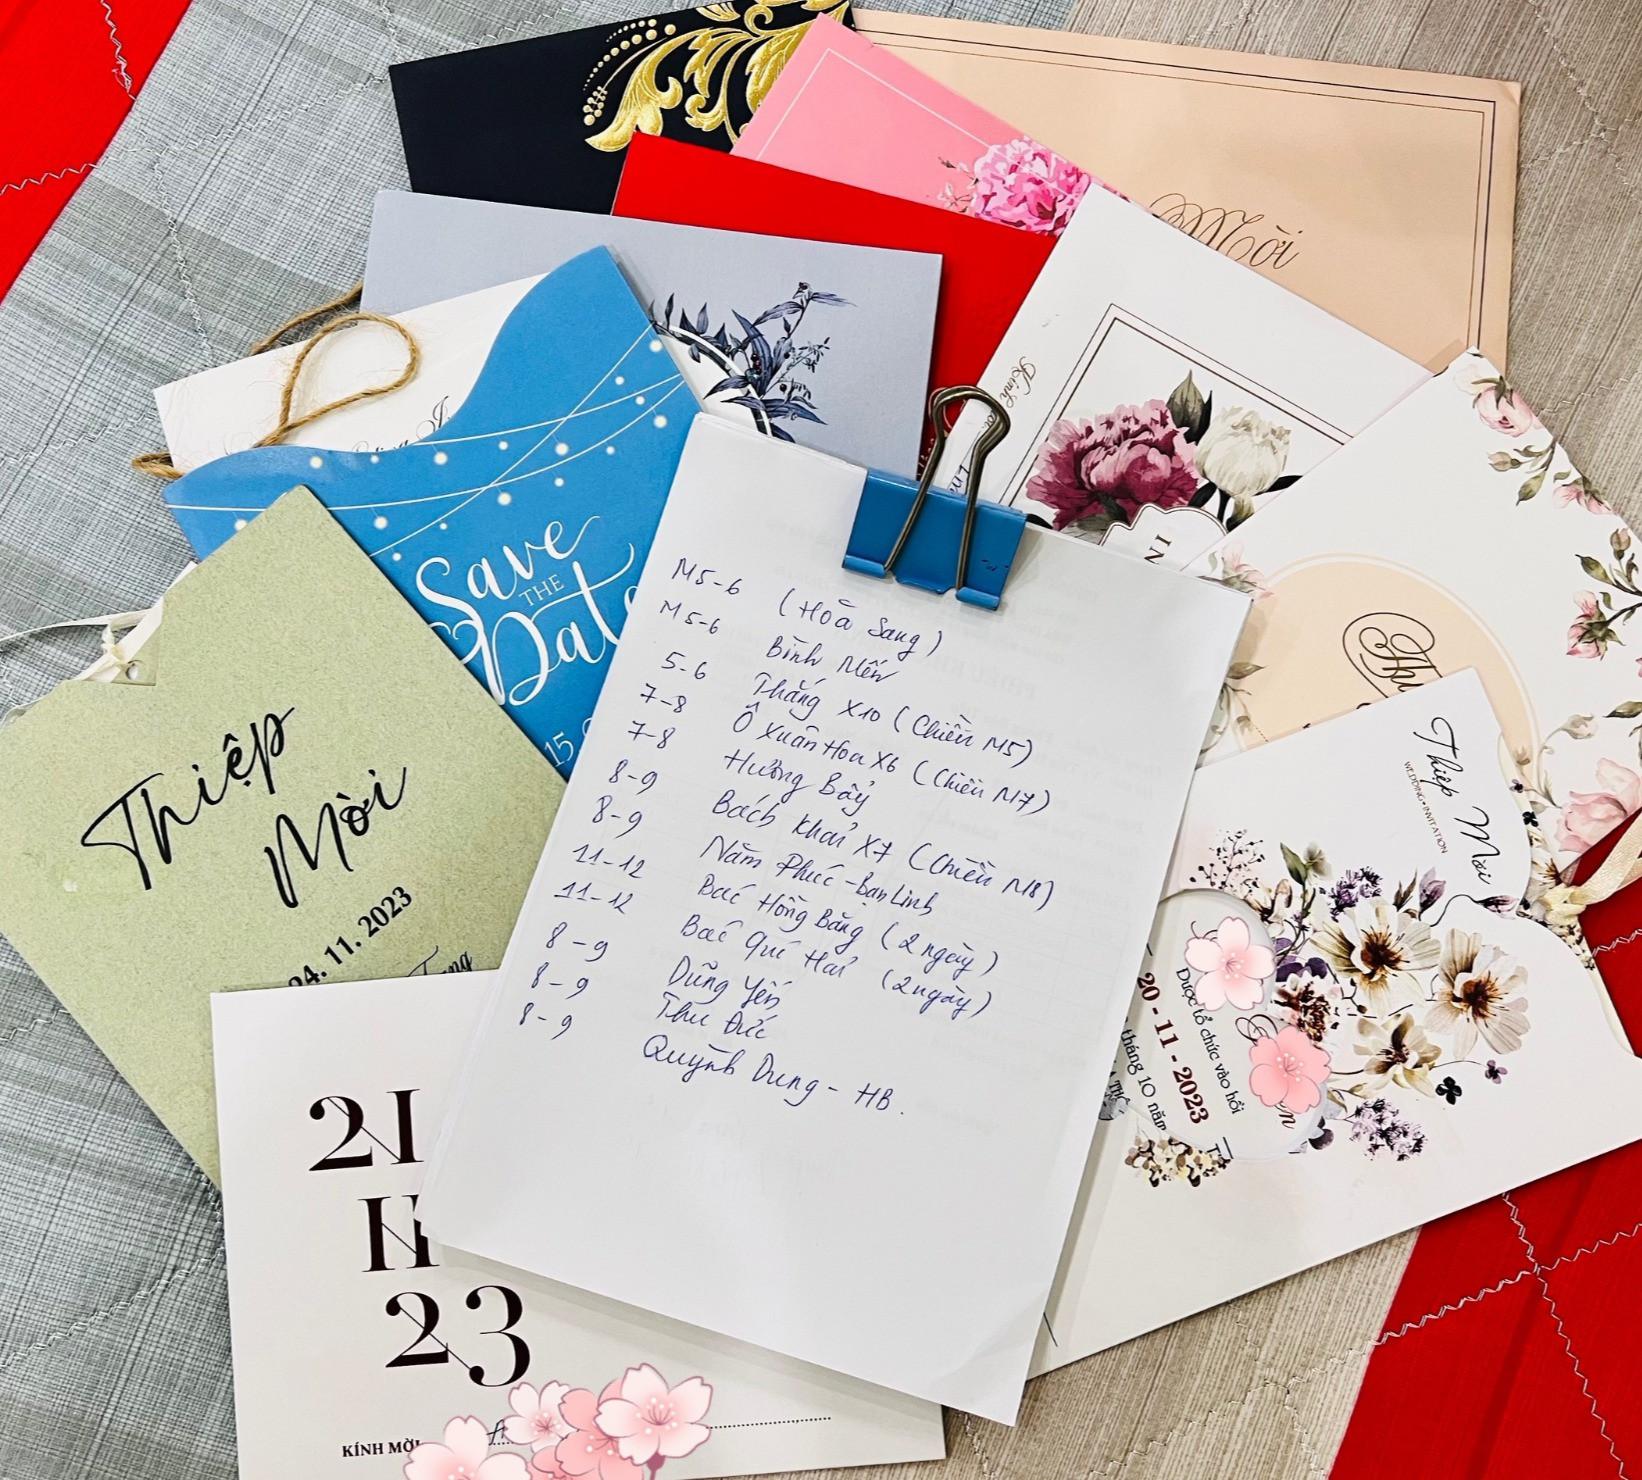 Mời
Kính
Save
THE
Date
15
Thiệp
Mời
24. 11. 2023
Trang
Thiệp Mời
WEDDING INVITATION
20 - 11 - 2023
Được tổ chức vào hồi
tháng 10 năm
IN
M5-6 (Hoà Sang)
M5-6 Bình Mến
5-6 Thắng X10 (Chiều M5)
7-8 Ô Xuân Hoa X6 (Chiều M7)
7-8 Hường Bẩy
8-9 Bách Khải X7 (Chiều M8)
8-9 Năm Phúc - Bạn Linh
11-12 Bác Hồng Bằng (2 ngày)
11-12 Bác Quí Hải (2 ngày)
8-9 Dũng Yến
8-9 Thu Đức
8-9 Quỳnh Dung - HB.
21
11
23
KÍNH MỜI